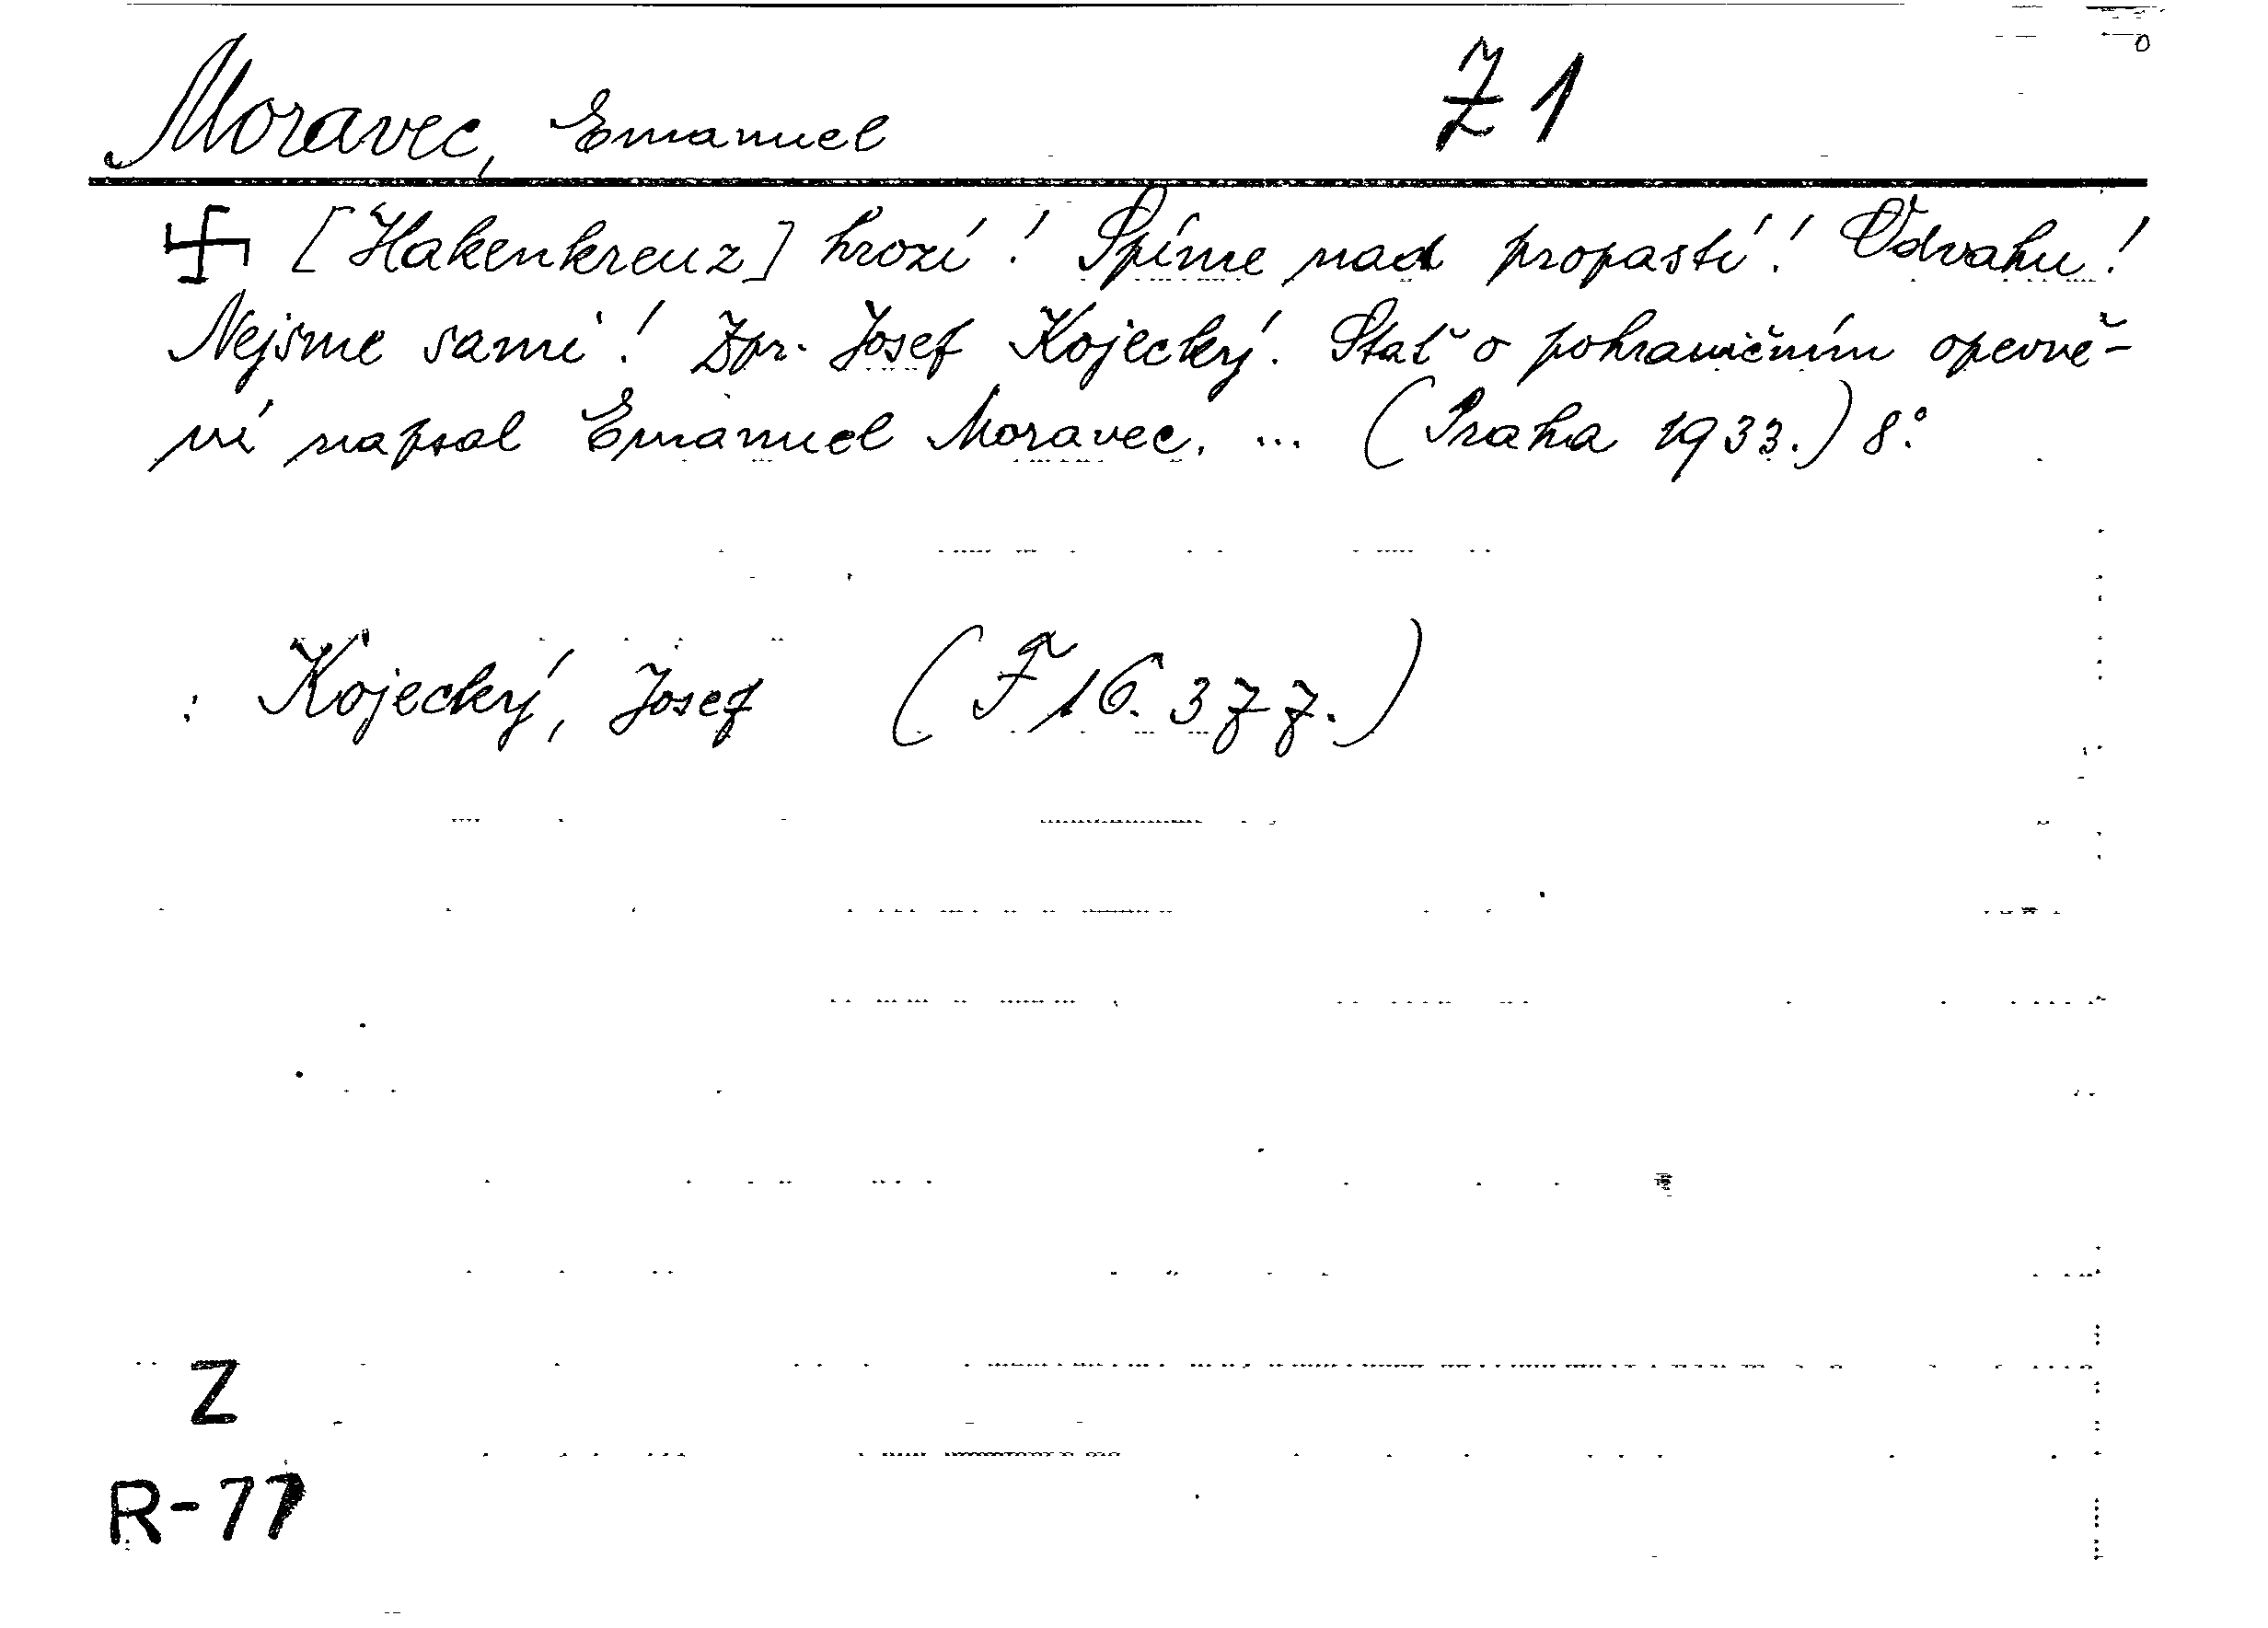 Moravec, Emanuel Z 1
卐 [Hakenkreuz] hrozí! Spíme nad propastí! Odvahu!
Nejsme sami! Zpr. Josef Kojecký. Stať o pohraničním opevně-
ní napsal Emanuel Moravec. ... (Praha 1933.) 8°.
: Kojecký, Josef (F 16.377.)
Z
R-77